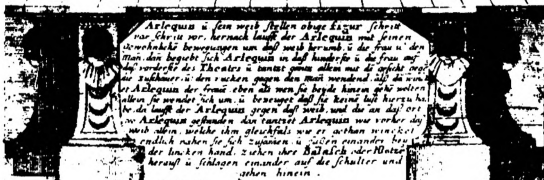 Arlequin ü sein weib stellen obige figur schritt
vor schritt vor. hernach laufft der Arlequin mit seinen
gewohnliche bewegungen um daß weib herumb. ü die frau u den
man. dan begiebt sich Arlequin in daß hinderste ü die frau auf
daß vorderste des Theatre in der ganz allein mit de gesicht geg
zuschauer. ü den rucken gegen den man wendend. als da winckt
er Arlequin der frauë eben als wen sie beyde hinein gehē wolten
allein sie wendet sich um. ü bezeuget daß sie keine lust hierzu ha
da laufft der Arlequin gegen daß weib. und die an daß ort
wo Arlequin gestanden dan tantzet Arlequin wie vorher daß
weib allein. welche ihm gleichfals wie er gethan wincket
endlich nahen sie sich zusamen. ü fassen einander bey
der lincken hand. ziehen ihre Batasch oder Klotze
herauß ü schlagen einander auf die schulter und
gehen hinein.